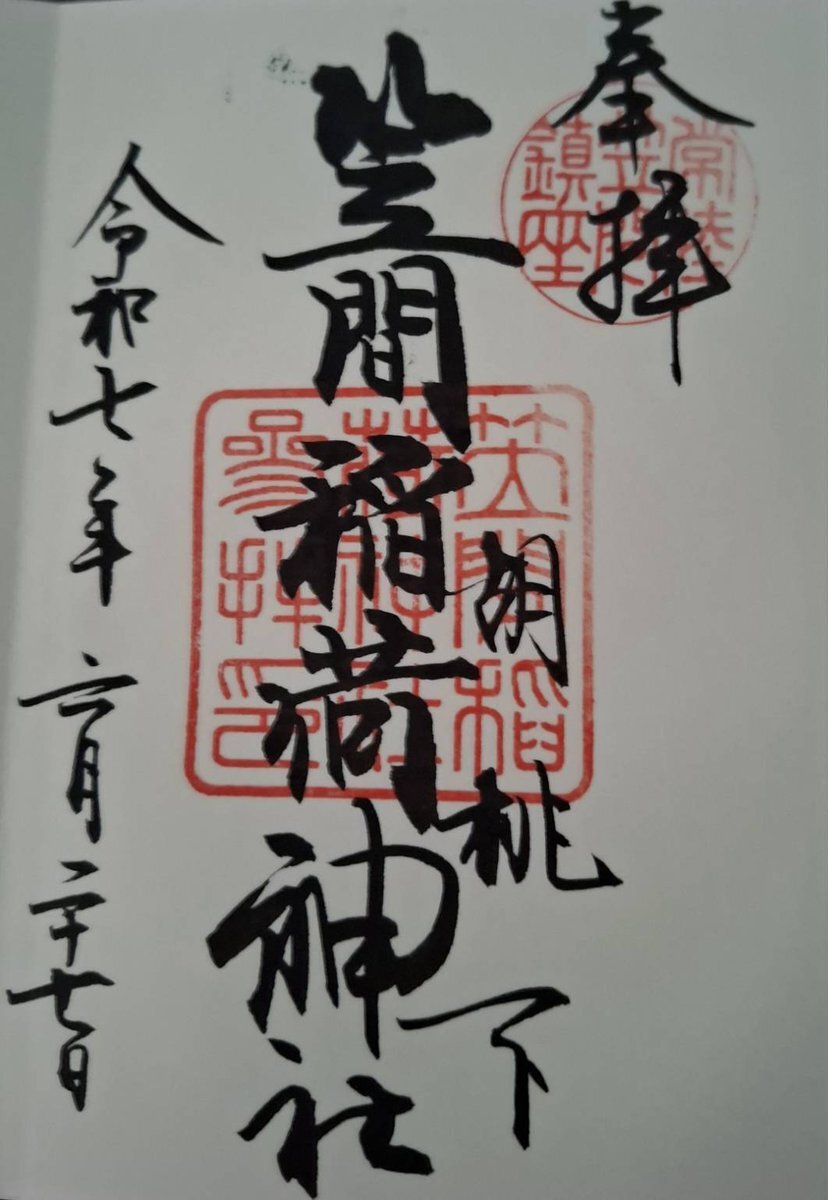 奉拝
常陸
笠間
鎮座
胡桃下
笠間稲荷神社
笠間稲
荷神社
参拝印
令和七年六月二十七日